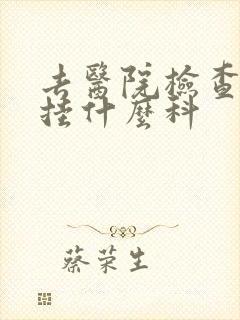 去醫院檢查
挂什麼科
蔡荣生